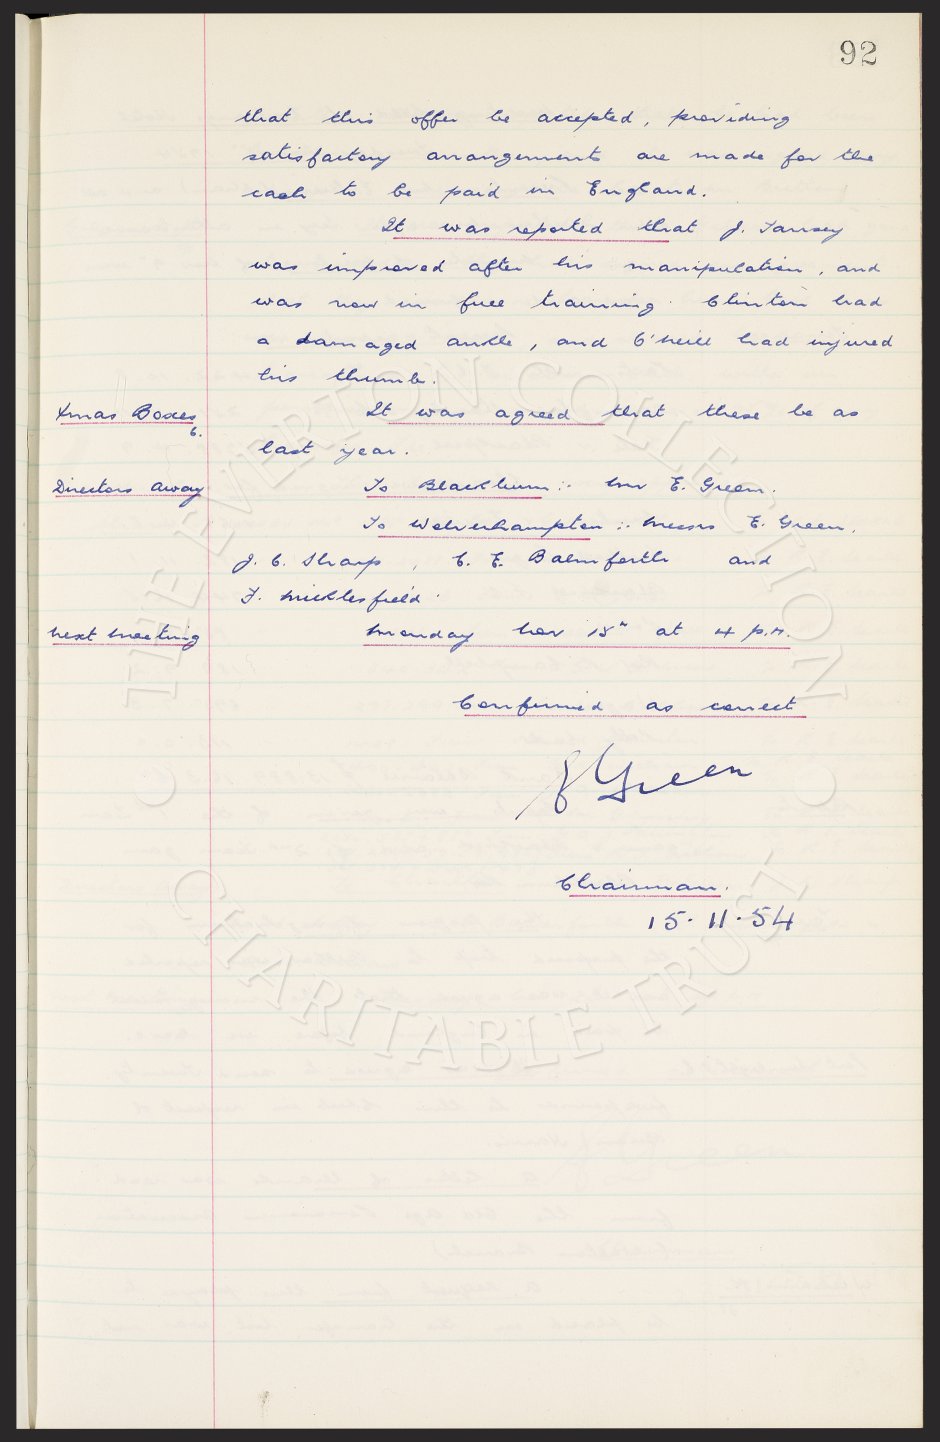 92
that this offer be accepted, providing
satisfactory arrangements are made for the
cash to be paid in England.
It was reported that J. Tansey
was improved after his manipulation, and
was now in full training. Clinton had
a damaged ankle, and O'Neill had injured
his thumb.
Xmas Boxes
6.
It was agreed that these be as
last year.
Directors Away
To Blackburn :- Mr E. Green.
To Wolverhampton :- Messrs E. Green,
J. C. Sharp, C. E. Balmforth and
F. Micklesfield.
Next Meeting
Monday Nov 15" at 4 p.m.
Confirmed as correct
Green
Chairman.
15.11.54
THE EVERTON COLLECTION
CHARITABLE TRUST